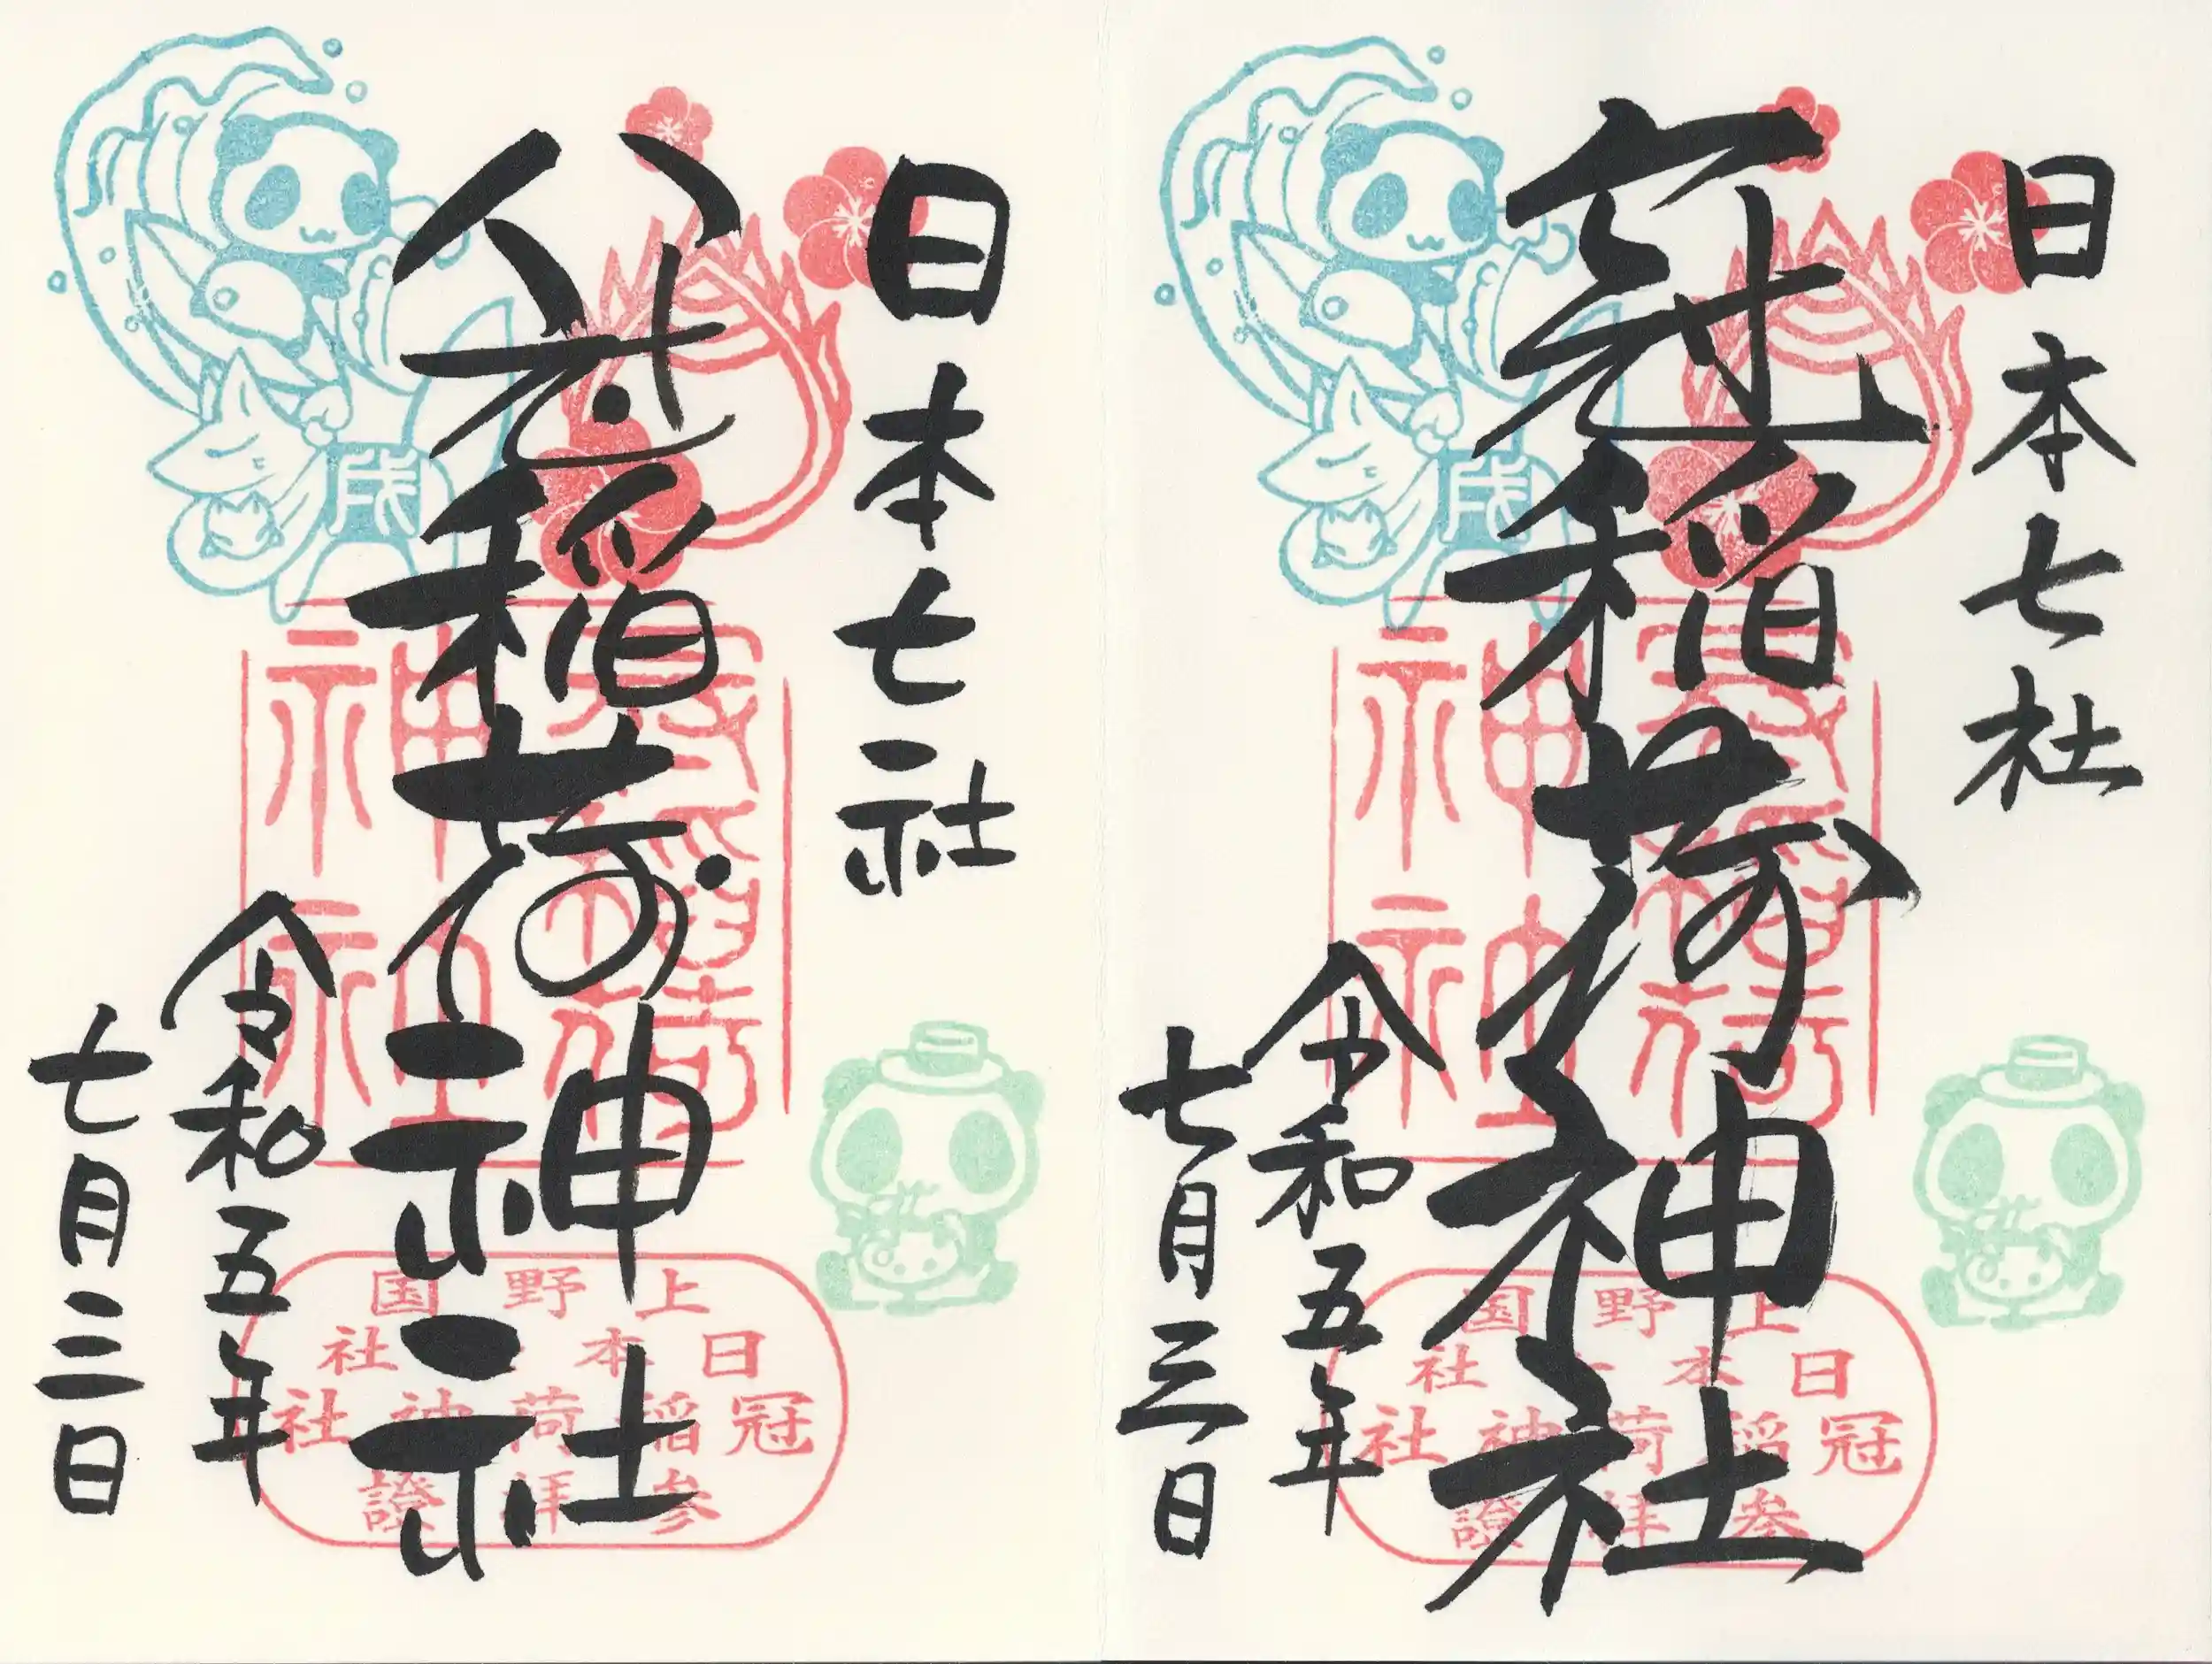 日本七社
冠稲荷神社
令和五年
七月三日
戌
冠稲荷
神社
上野国
日本七社
冠稲荷神社
参拝證
日本七社
冠稲荷神社
令和五年
七月三日
戌
冠稲荷
神社
上野国
日本七社
冠稲荷神社
参拝證